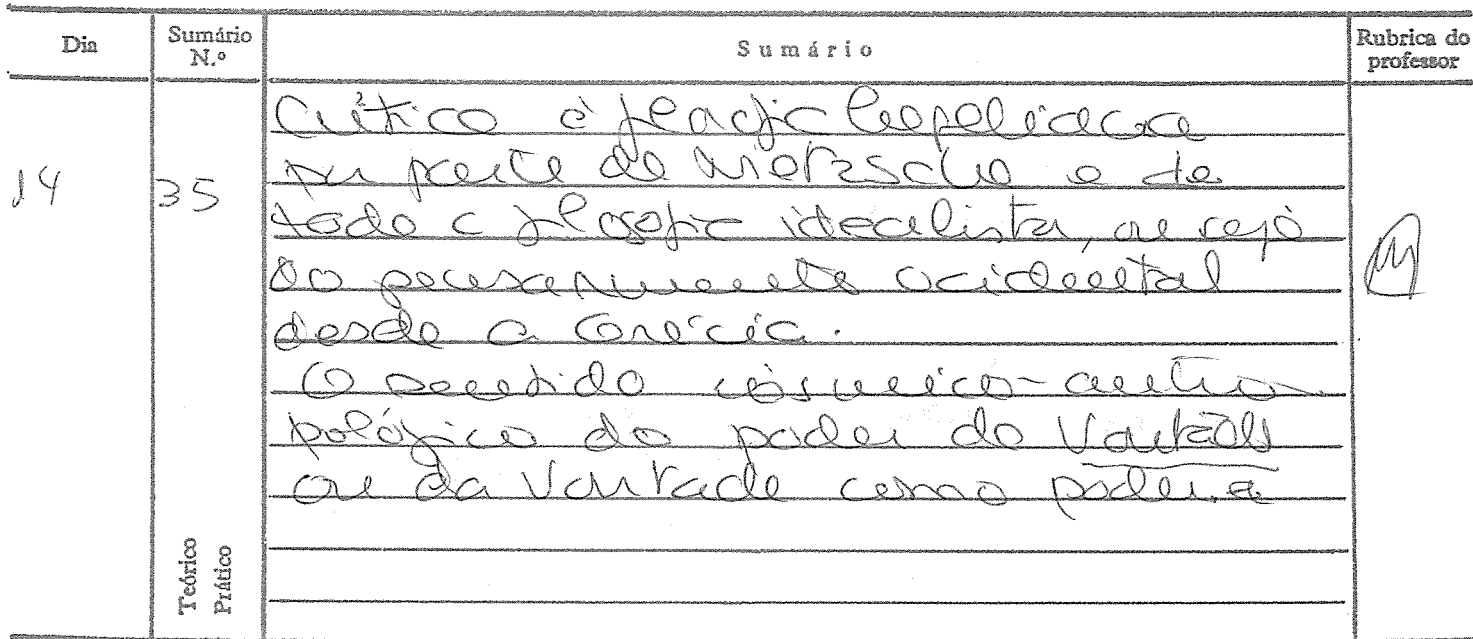 Dia Sumário N.º Sumário Rubrica do professor
14 35
Crítica à filosofia hegeliana
por parte de Nietzsche e de
toda a filosofia idealista, ou seja
do pensamento ocidental
desde a Grécia.
O sentido cósmico-antro
pológico do poder da Vontade
ou da Vontade como poder.
Teórico
Prático